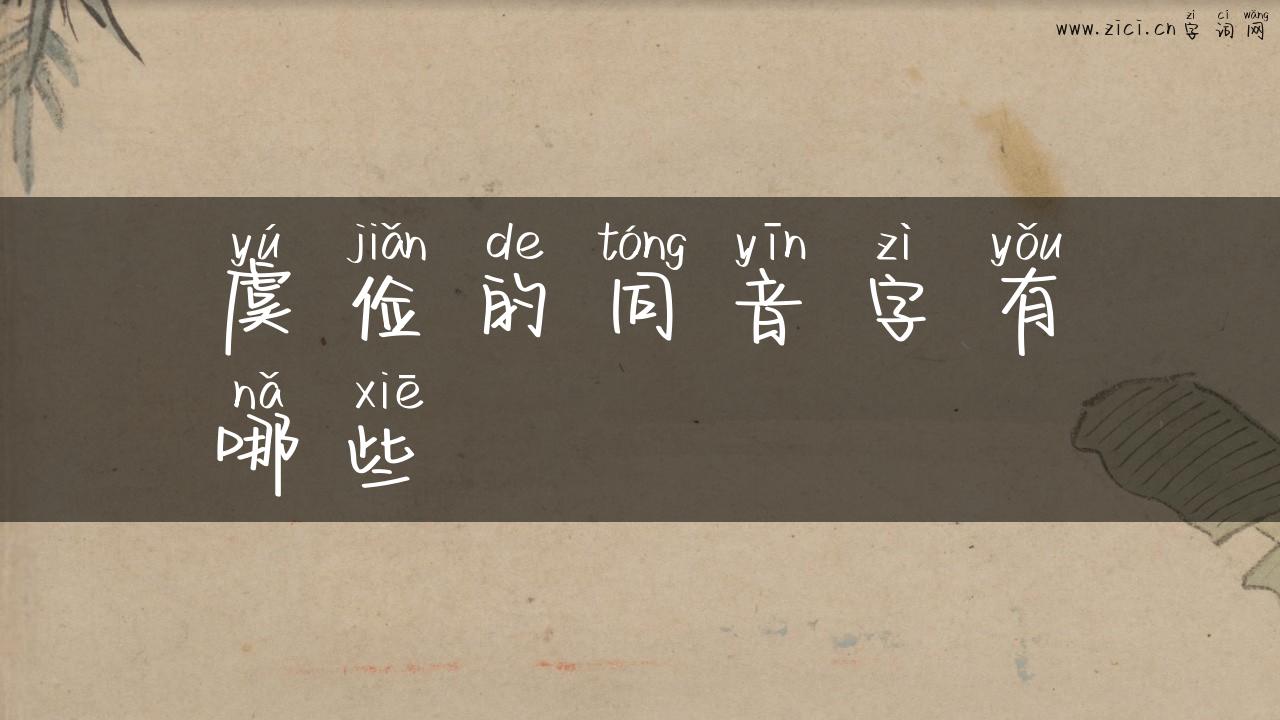 zì cí wǎng
www.zici.cn 字词网
yú jiǎn de tóng yīn zì yǒu
虞俭的同音字有
nǎ xiē
哪些